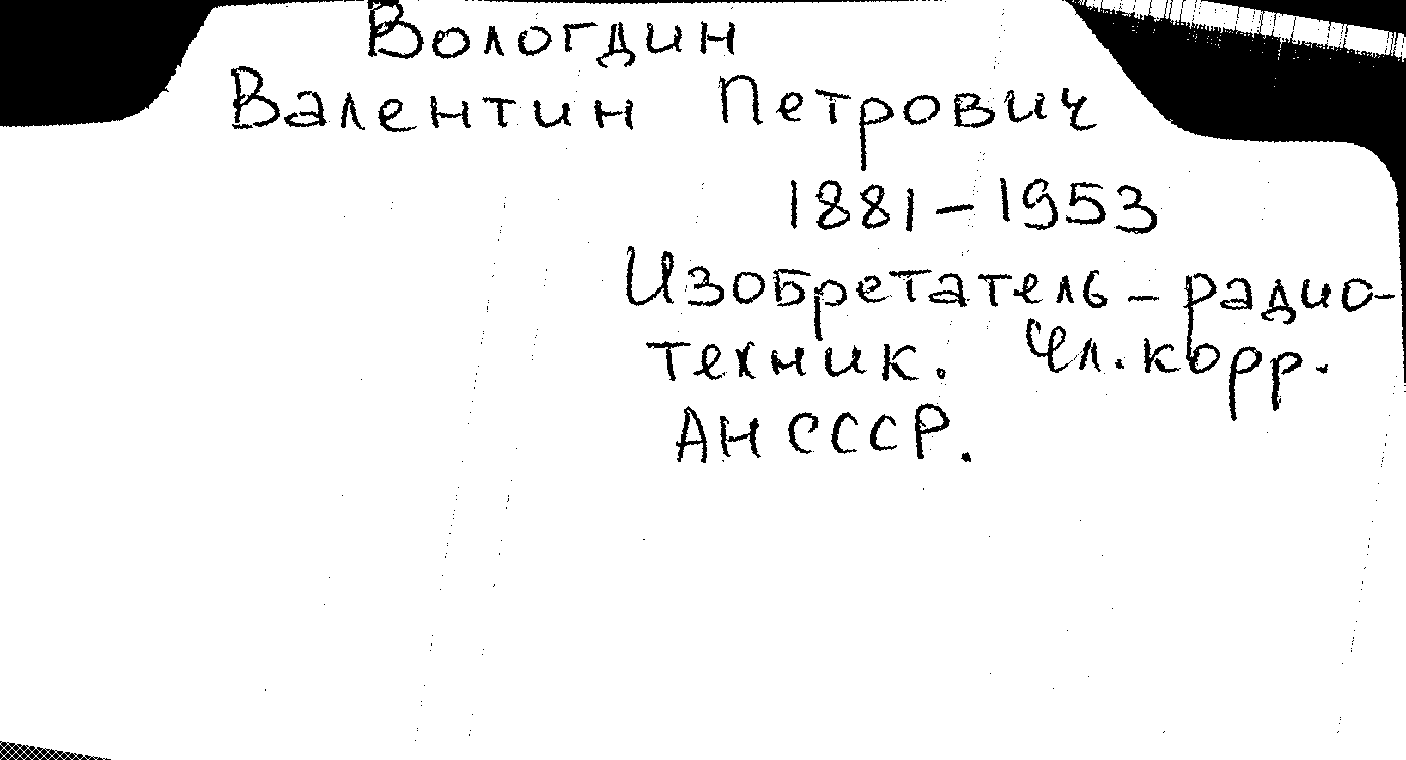 Вологдин
Валентин Петрович
1881-1953
Изобретатель-радио-
техник. Чл.корр.
АН СССР.